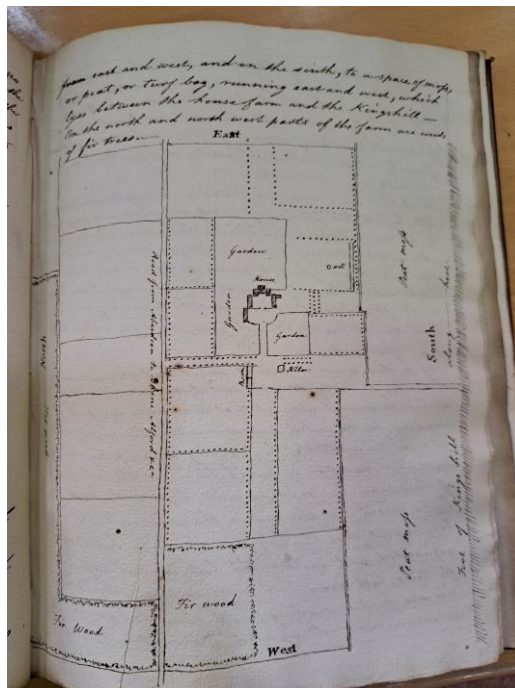 from east and west, and on the south, to a space of moss,
or peat, or turf bog, running east and west, which
lyes between the house farm and the Kingshill —
On the north and north west parts of the farm are woods
of fir trees
East
Garden
House
Garden
Garden
Peat moss
South
along here
North
Road from Aberdeen to
Peat moss
Foot of Kings hill
Fir wood
Fir Wood
West